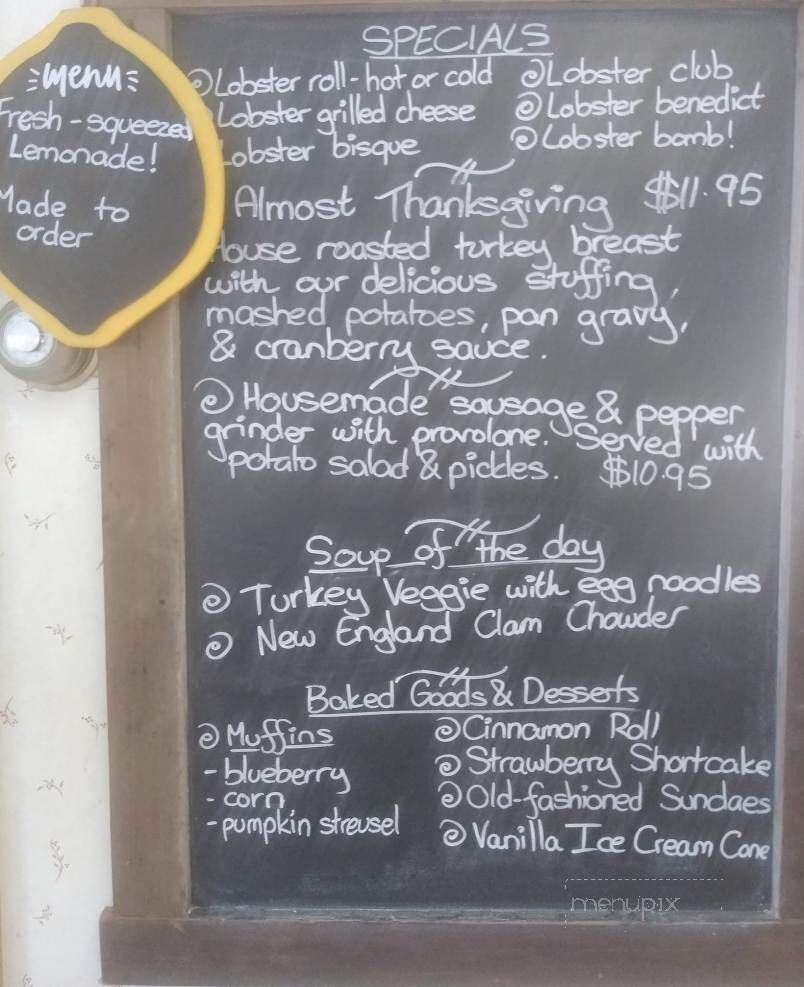 menu
Fresh-squeezed
Lemonade!
Made to
order
SPECIALS
Lobster roll - hot or cold
Lobster grilled cheese
Lobster bisque
Lobster club
Lobster benedict
Lobster bomb!
Almost Thanksgiving $11.95
House roasted turkey breast
with our delicious stuffing,
mashed potatoes, pan gravy,
& cranberry sauce.
Housemade sausage & pepper
grinder with provolone. Served with
potato salad & pickles. $10.95
Soup of the day
Turkey Veggie with egg noodles
New England Clam Chowder
Baked Goods & Desserts
Muffins
- blueberry
- corn
- pumpkin streusel
Cinnamon Roll
Strawberry Shortcake
Old-fashioned Sundaes
Vanilla Ice Cream Cone
menupix